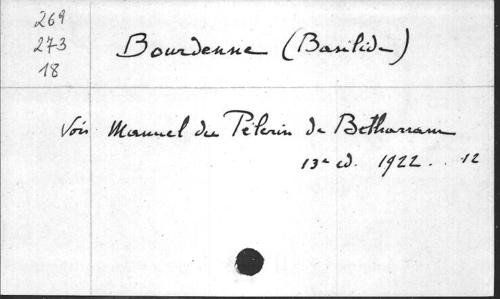 269
273
18
Bourdenne (Basilide)
Voir Manuel du Pélerin de Betharram
13e ed. 1922 . . 12